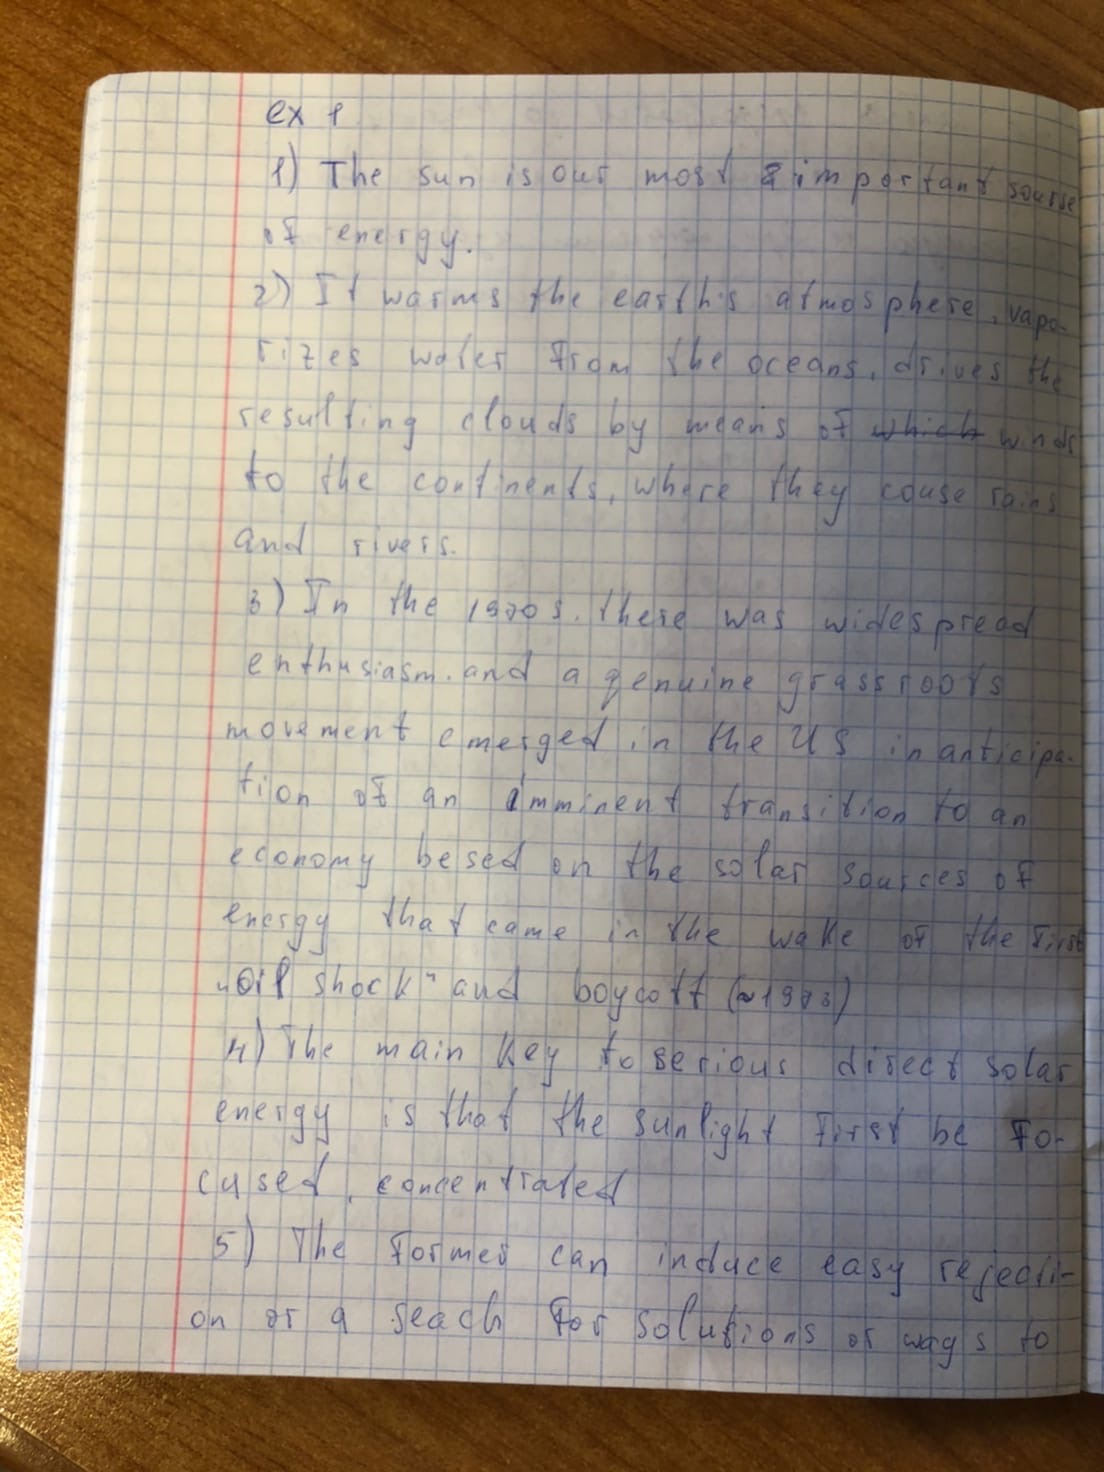 ex 1
1) The sun is our most important sourse
of energy.
2) It warms the earth's atmosphere, vapo-
rizes water from the oceans, drives the
resulting clouds by means of which winds
to the continents, where they couse rains
and rivers.
3) In the 1970s, there was widespread
enthusiasm, and a genuine grassroots
movement emerged in the US in anticipa-
tion of an imminent transition to an
economy besed on the solar sources of
energy that came in the wake of the first
"Oil shock" and boycott (~1973)
4) The main key to serious direct solar
energy is that the sunlight first be fo-
cused, concentrated
5) The former can induce easy rejecti-
on or a seach for solutions or ways to